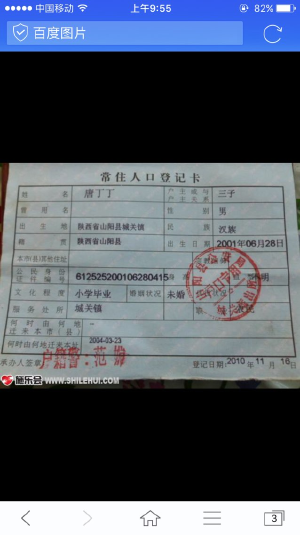 中国移动 上午9:55 82%
百度图片
常住人口登记卡
姓名 唐丁丁 户主或与户主关系 三子
曾用名 性别 男
出生地 陕西省山阳县城关镇 民族 汉族
籍贯 陕西省山阳县 出生日期 2001年06月28日
本市(县)其他住址
公民身份证件编号 612525200106280415
文化程度 小学毕业 婚姻状况 未婚
服务处所 城关镇
何时由何地迁来本市(县) -
何时由何地迁来本址 2004-03-23
承办人签章 户籍警: 登记日期: 2010年11月16日
施乐会 WWW.SHILEHUI.COM
3